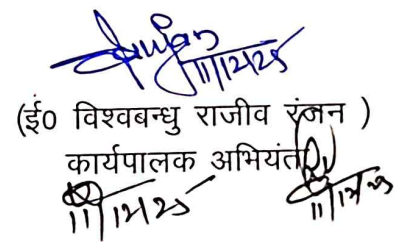 11/12/25
(ई0 विश्वबन्धु राजीव रंजन )
कार्यपालक अभियंता
11/12/25
11/12/25